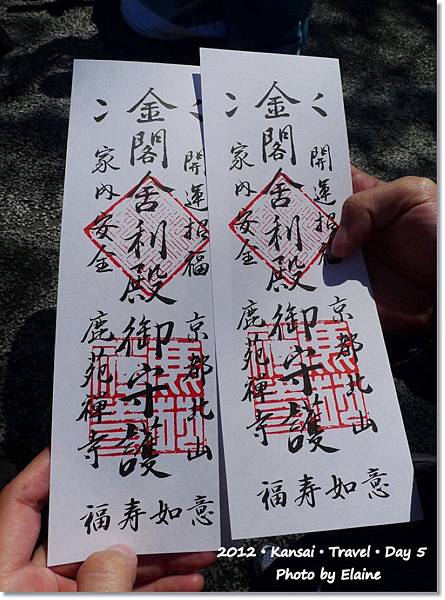 金閣舍利殿御守護
開運招福
家内安全
京都北山
鹿苑禅寺
福寿如意
金閣舍利殿御守護
開運招福
家内安全
京都北山
鹿苑禅寺
福寿如意
2012・Kansai・Travel・Day 5
Photo by Elaine